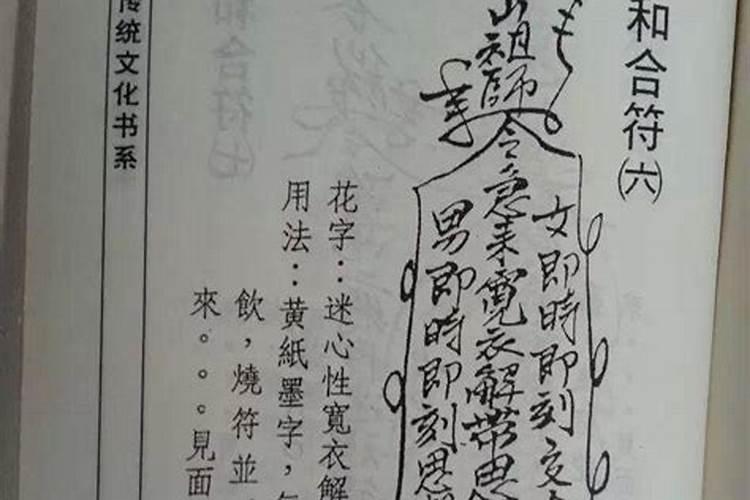 和合符㈥
山祖師
令急來寬衣解帶思
女即時即刻交
男即時即刻思
花字：迷心性寬衣解
用法：黃紙墨字，
飲，燒符並
來。。。見面
传统文化书系